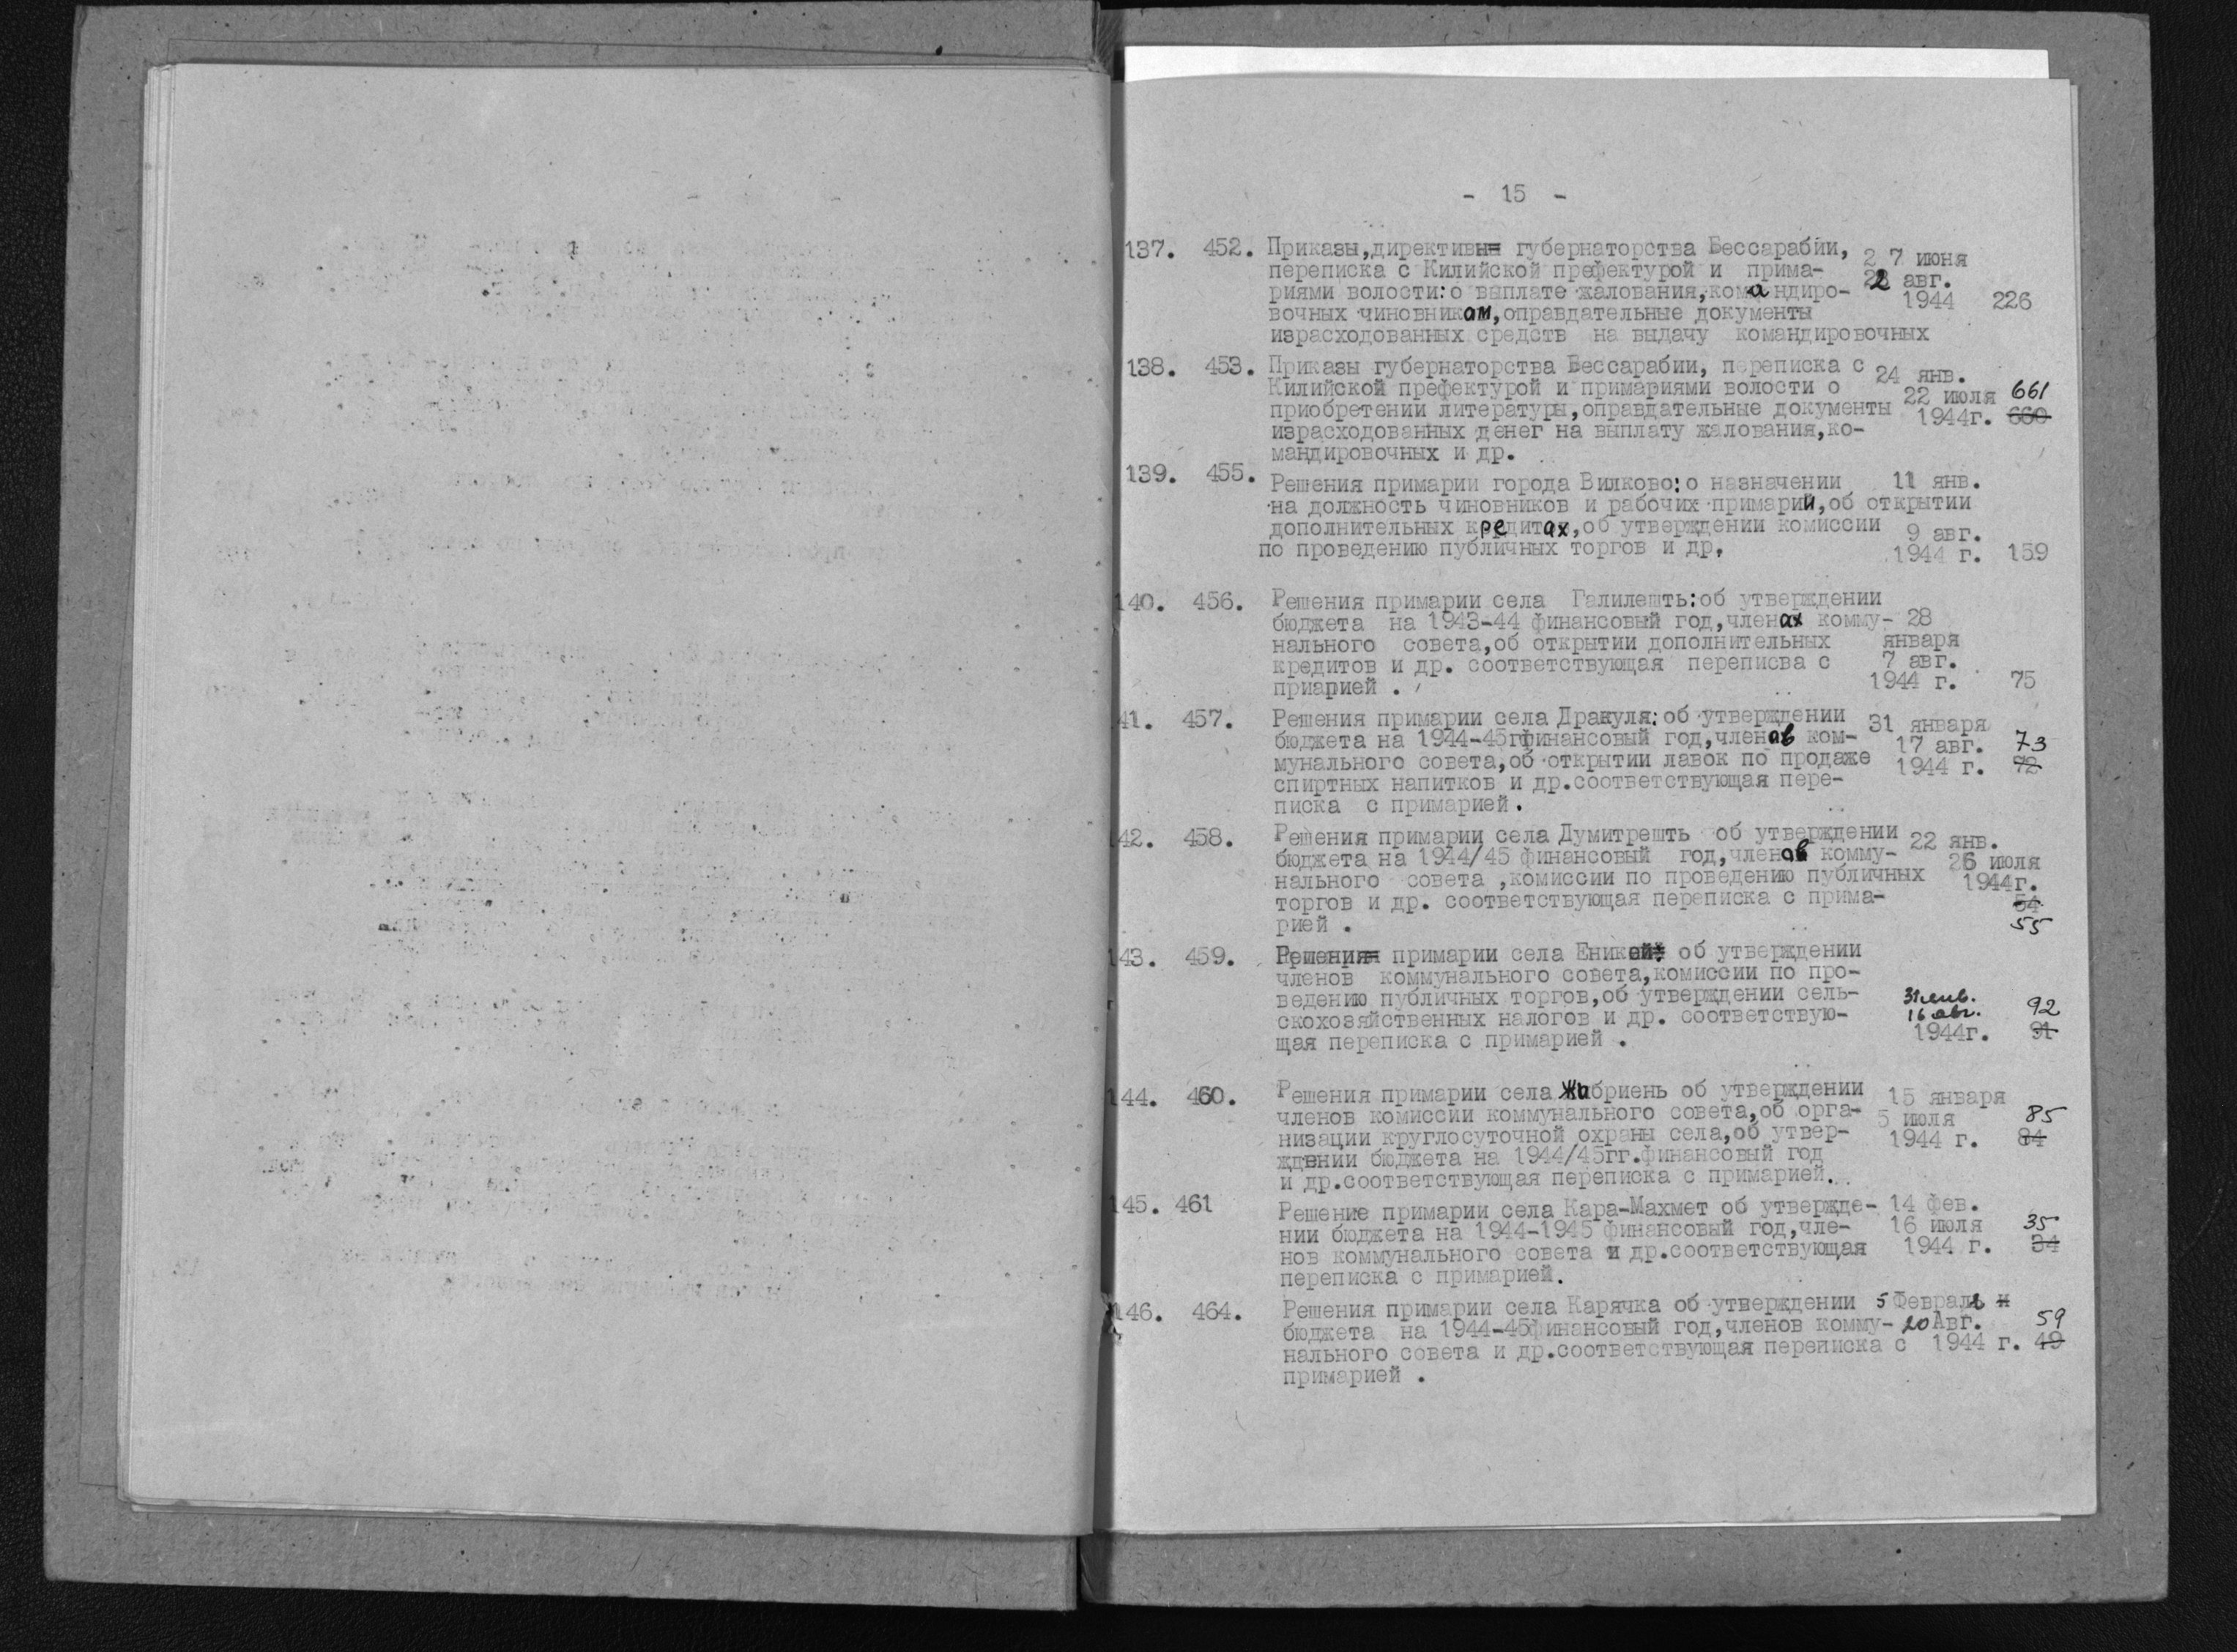 - 15 -
137. 452. Приказы,директивы губернаторства Бессарабии, 2 7 июня
переписка с Килийской префектурой и прима- 22 авг.
риями волости:о выплате жалования,командиро- 1944 226
вочных чиновникам,оправдательные документы
израсходованных средств на выдачу командировочных
138. 453. Приказы губернаторства Бессарабии, переписка с 24 янв.
Килийской префектурой и примариями волости о 22 июля 661
приобретении литературы,оправдательные документы 1944г. 660
израсходованных денег на выплату жалования,ко-
мандировочных и др.
139. 455. Решения примарии города Вилково:о назначении 11 янв.
на должность чиновников и рабочих примарии,об открытии
дополнительных кредитах,об утверждении комиссии 9 авг.
по проведению публичных торгов и др, 1944 г. 159
140. 456. Решения примарии села Галилешть:об утверждении
бюджета на 1943-44 финансовый год,членах комму- 28
нального совета,об открытии дополнительных января
кредитов и др. соответствующая переписва с 7 авг.
приарией . 1944 г. 75
41. 457. Решения примарии села Дракуля:об утверждении 31 января
бюджета на 1944-45гфинансовый год,членов ком- 17 авг. 73
мунального совета,об открытии лавок по продаже 1944 г. 72
спиртных напитков и др.соответствующая пере-
писка с примарией.
42. 458. Решения примарии села Думитрешть об утверждении 22 янв.
бюджета на 1944/45 финансовый год,членов комму- 26 июля
нального совета ,комиссии по проведению публичных 1944г.
торгов и др. соответствующая переписка с прима- 54
рией . 55
143. 459. Решения примарии села Еникей: об утверждении
членов коммунального совета,комиссии по про-
ведению публичных торгов,об утверждении сель- 31 янв.
скохозяйственных налогов и др. соответствую- 16 авг. 92
щая переписка с примарией . 1944г. 91
144. 460. Решения примарии села Жибриень об утверждении 15 января
членов комиссии коммунального совета,об орга- 5 июля 85
низации круглосуточной охраны села,об утвер- 1944 г. 84
ждении бюджета на 1944/45гг.финансовый год
и др.соответствующая переписка с примарией.
145. 461 Решение примарии села Кара-Махмет об утвержде- 14 фев.
нии бюджета на 1944-1945 финансовый год,чле- 16 июля 35
нов коммунального совета и др.соответствующая 1944 г. 34
переписка с примарией.
146. 464. Решения примарии села Карячка об утверждении 5 Февраля
бюджета на 1944-45финансовый год,членов комму- 20 Авг. 59
нального совета и др.соответствующая переписка с 1944 г. 49
примарией .